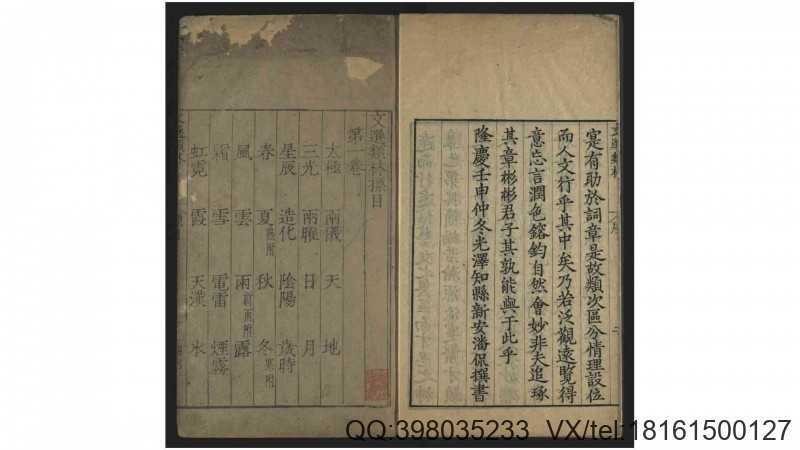 寔有助於詞章是故類次區分情理設位
而人文行乎其中矣乃若泛觀遠覽得
意忘言潤色鎔鈞自然會妙非夫追琢
其章彬彬君子其孰能與于此乎
隆慶壬申仲冬光澤知縣新安潘侃撰書
文選類林總目
第一卷
太極 兩儀 天 地
三光 兩曜 日 月
星辰 造化 陰陽 歲時
春 夏 秋 冬
風 雲 雨 露
霜 雪 電雷 煙霧
虹霓 霞 天漢 氷
QQ:398035233 VX/tel:18161500127